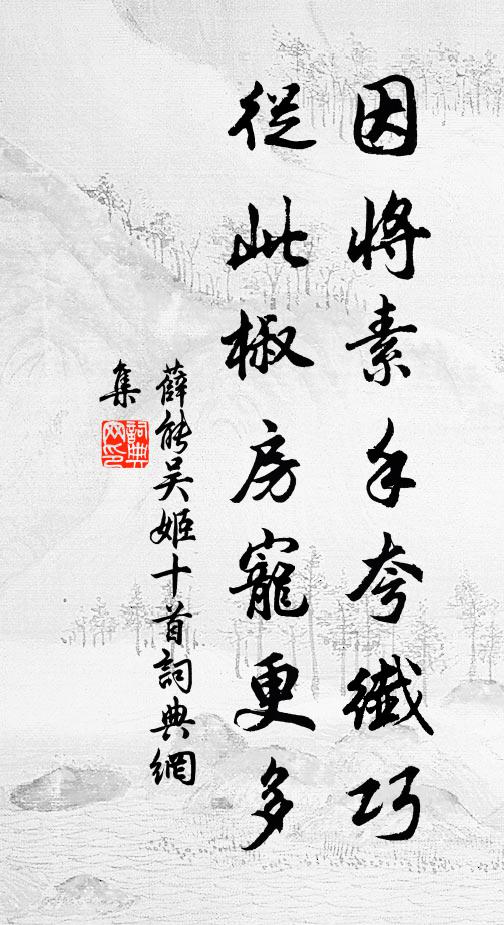 因將素手夸纖巧
從此椒房寵更多
薛能吴姬十首詞典網
集
詞典网印